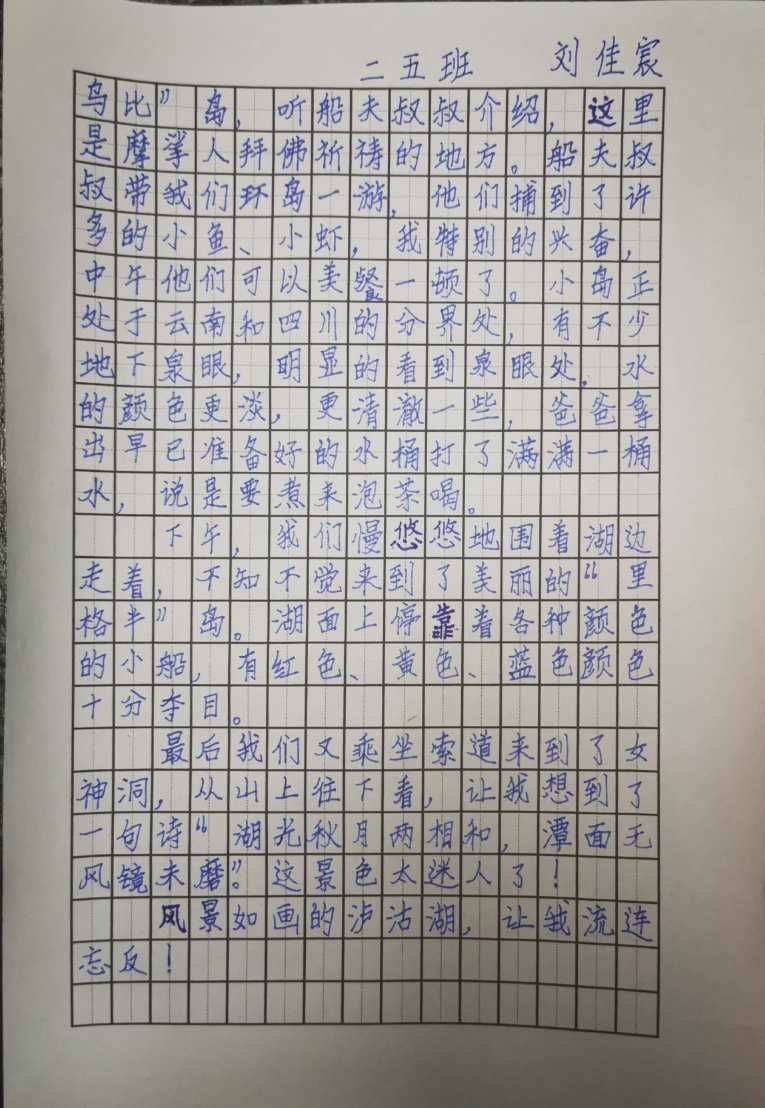 二五班 刘佳宸
鸟比”岛，听船夫叔叔介绍，这里
是摩挲人拜佛祈祷的地方。船夫叔
叔带我们环岛一游，他们捕到了许
多的小鱼、小虾，我特别的兴奋，
中午他们可以美餐一顿了。小岛正
处于云南和四川的分界处，有不少
地下泉眼，明显的看到泉眼处，水
的颜色更淡，更清澈一些，爸爸拿
出早已准备好的水桶打了满满一桶
水，说是要煮来泡茶喝。
下午，我们慢悠悠地围着湖边
走着，不知不觉来到了美丽的“里
格半”岛。湖面上停靠着各种颜色
的小船，有红色、黄色、蓝色颜色
十分夺目。
最后我们又乘坐索道来到了女
神洞，从山上往下看，让我想到了
一句诗“湖光秋月两相和，潭面无
风镜未磨”。这景色太迷人了！
风景如画的泸沽湖，让我流连
忘反！